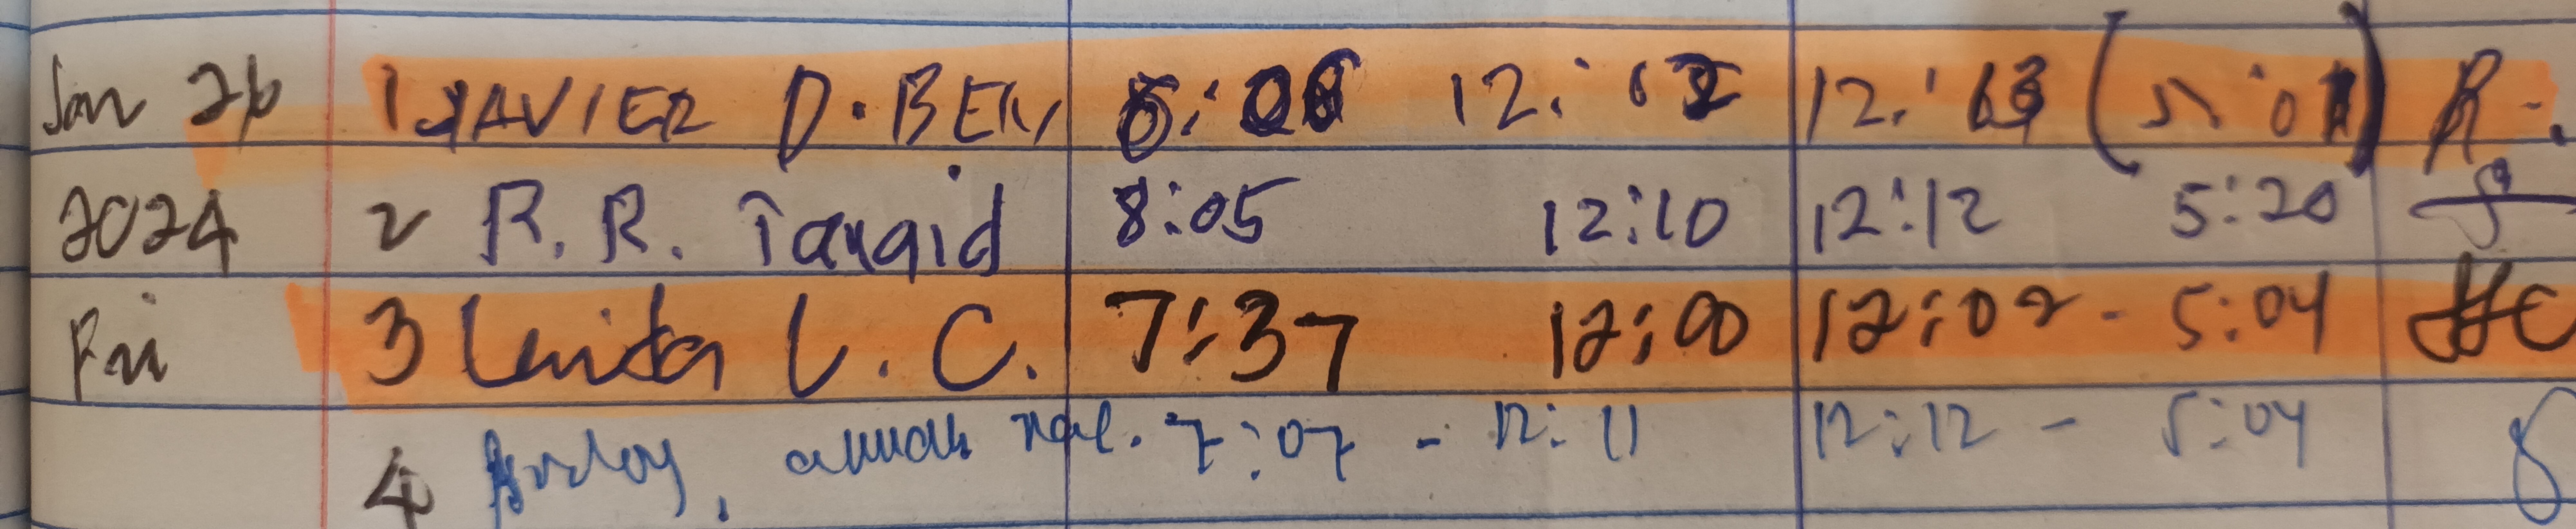 Jan 26 1 JAVIER D. BEN 8:06 12:12 12:13 (5:01) R.
2024 2 R.R. Tangid 8:05 12:10 12:12 5:20
Fri 3 Lenita L. C. 7:37 12:00 12:02 - 5:04
4 7:07 - 12:11 12:12 - 5:04